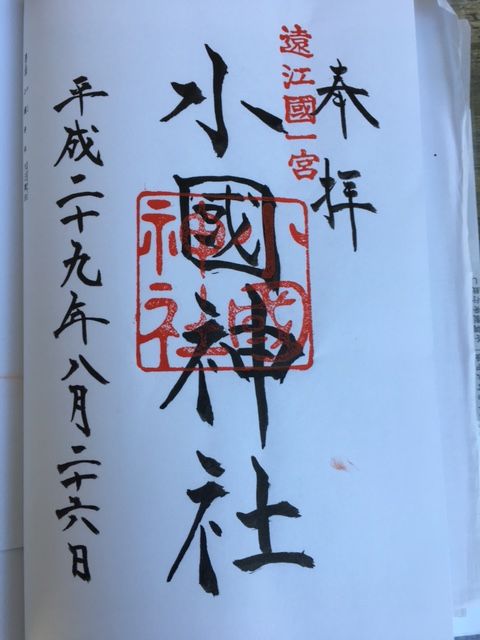 奉拝
遠江國一宮
小國神社
小國神社
平成二十九年八月二十六日